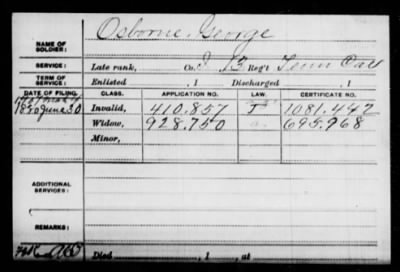 Osborne, George
NAME OF SOLDIER:
SERVICE: Late rank, Co. I, 13 Reg't Tenn Cav
TERM OF SERVICE: Enlisted , 1 Discharged , 1
DATE OF FILING. CLASS. APPLICATION NO. LAW. CERTIFICATE NO.
1880 June 30 Invalid, 410.857 1081.442
Widow, 928.750 695.768
Minor,
ADDITIONAL SERVICES:
REMARKS:
Died , 1 , at